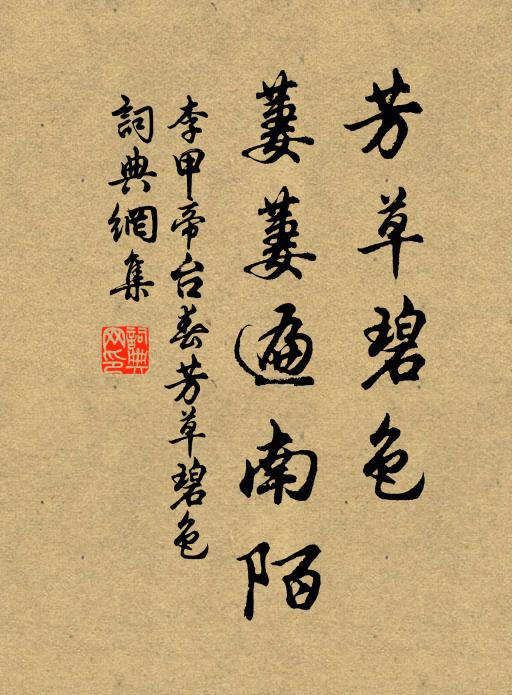 芳草碧色
萋萋遍南陌
李甲帝台春芳草碧色
詞典網集
詞典網印